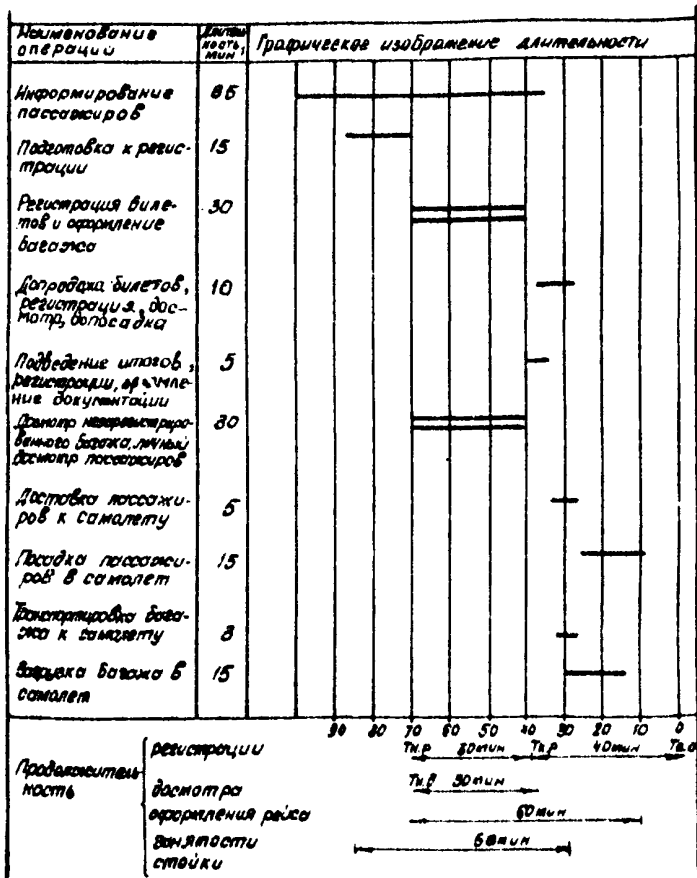 Наименование операций
Длитель ность, мин
Графическое изображение длительности
Информирование
пассажиров
65
Подготовка к регис-
трации
15
Регистрация биле-
тов и оформление
багажа
30
Допродажа билетов,
регистрация, дос-
мотр, допосадка
10
Подведение итогов,
регистрации, оформле-
ние документации
5
Досмотр незарегистриро-
ванного багажа, личный
досмотр пассажиров
30
Доставка пассажи-
ров к самолету
5
Посадка пассажи-
ров в самолет
15
Транспортировка бага-
жа к самолету
3
Загрузка багажа в
самолет
15
90 80 70 60 50 40 30 20 10 0
Продолжитель
ность
регистрации
Тн.р 30мин Тк.р 40мин Тв.о
досмотра
Тн.р 30мин
оформления рейса
60мин
занятости
стойки
60мин